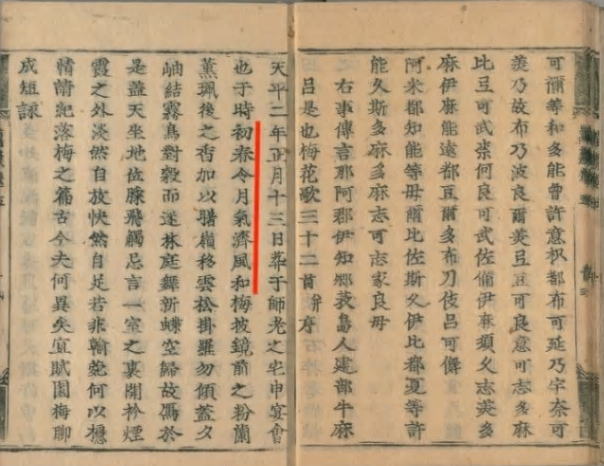 可禰等和多能曽許意枳都布可延乃宇奈可
美乃故布乃波良爾美旦豆可良意可志多麻
比旦可武奈何良可武佐備伊麻須久志美多
麻伊麻能遠都豆爾多布刀伎呂可儛
阿米都知能等母爾比佐斯久伊比都夏等許
能久斯多麻多麻志可志家良母
右事傳言那阿郡伊知郷蓑島人建部牛麻
呂是也梅花歌三十二首并序
天平二年正月十三日萃于師老之宅申宴會
也于時初春令月氣淑風和梅披鏡前之粉蘭
薫珮後之香加以曙嶺移雲松掛羅勿傾盖夕
岫結霧鳥對縠而迷林庭舞新蝶空歸故鴈於
是盖天坐地促膝飛觴忘言一室之裏開衿煙
霞之外淡然自放快然自足若非翰苑何以攄
情請紀落梅之篇古今夫何異矣宜賦園梅聊
成短詠